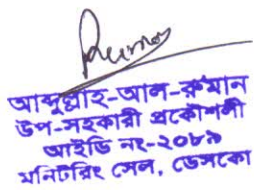 আব্দুল্লাহ-আল-রুম্মান
উপ-সহকারী প্রকৌশলী
আইডি নং-২০৮৯
মনিটরিং সেল, ডেসকো